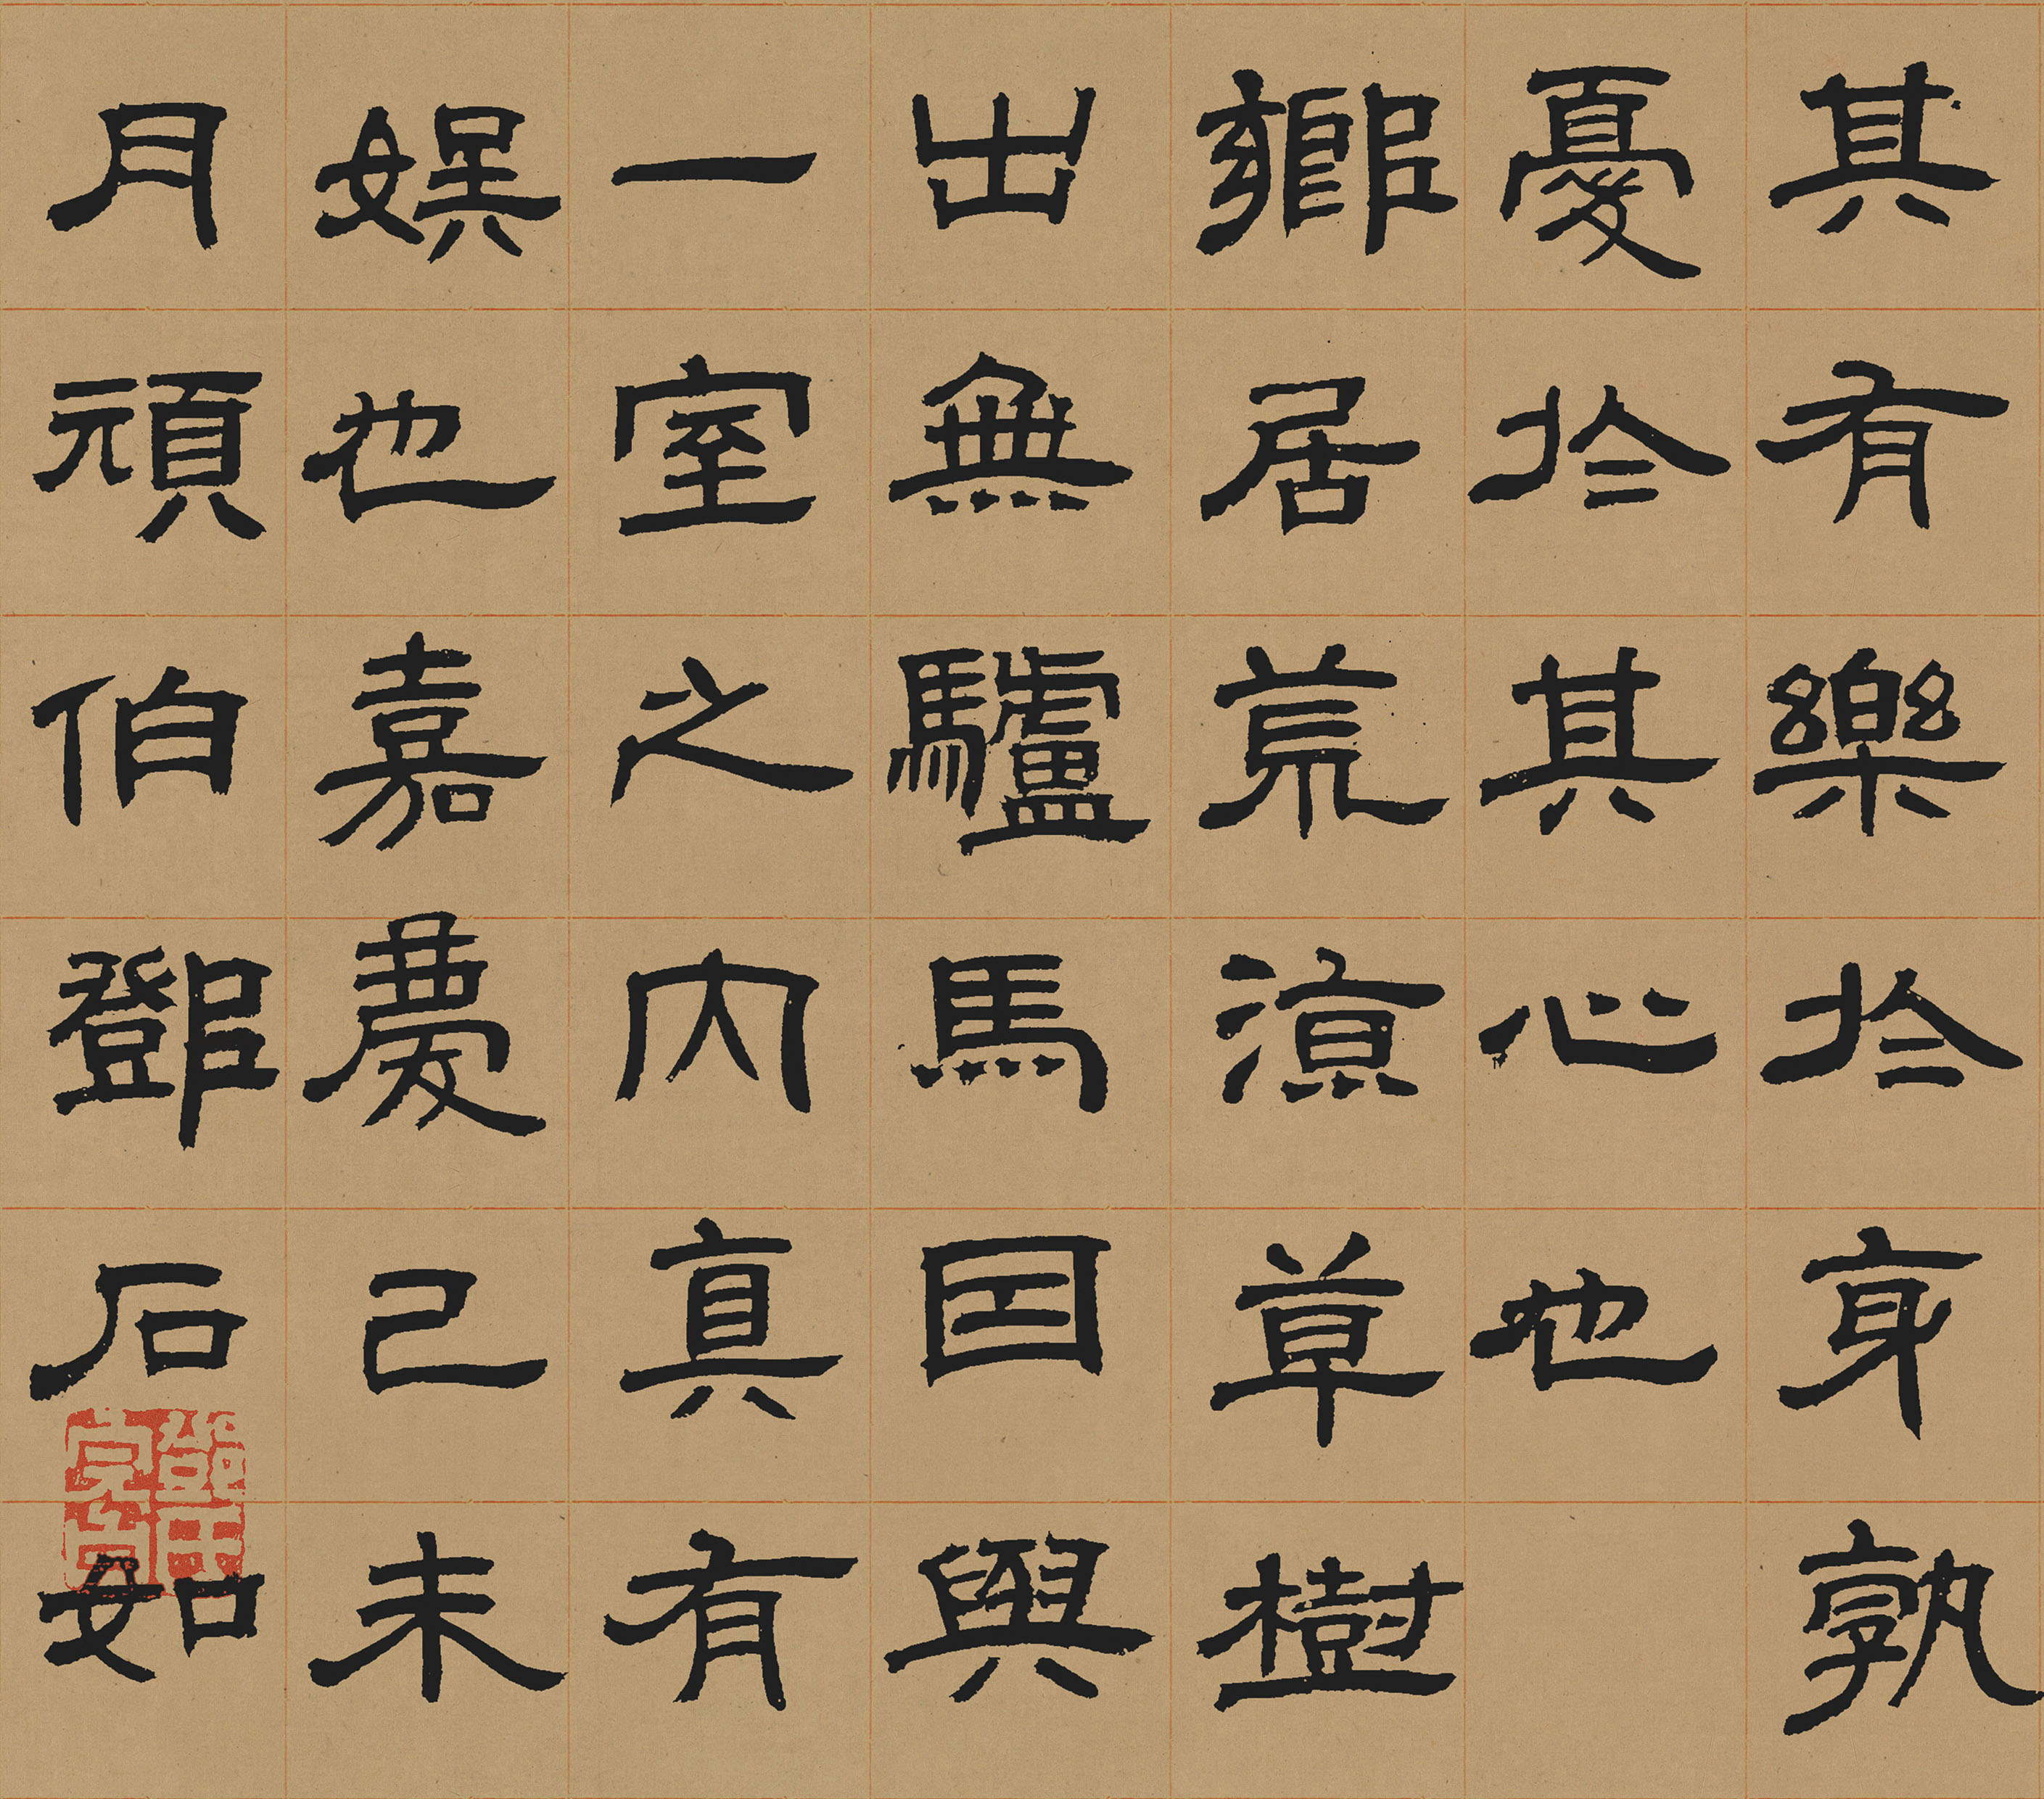 其有樂於身孰
憂於其心也
鄉居荒涼草樹
出無驢馬因與
一室之內真有
娛也嘉慶己未
月頑伯鄧石如